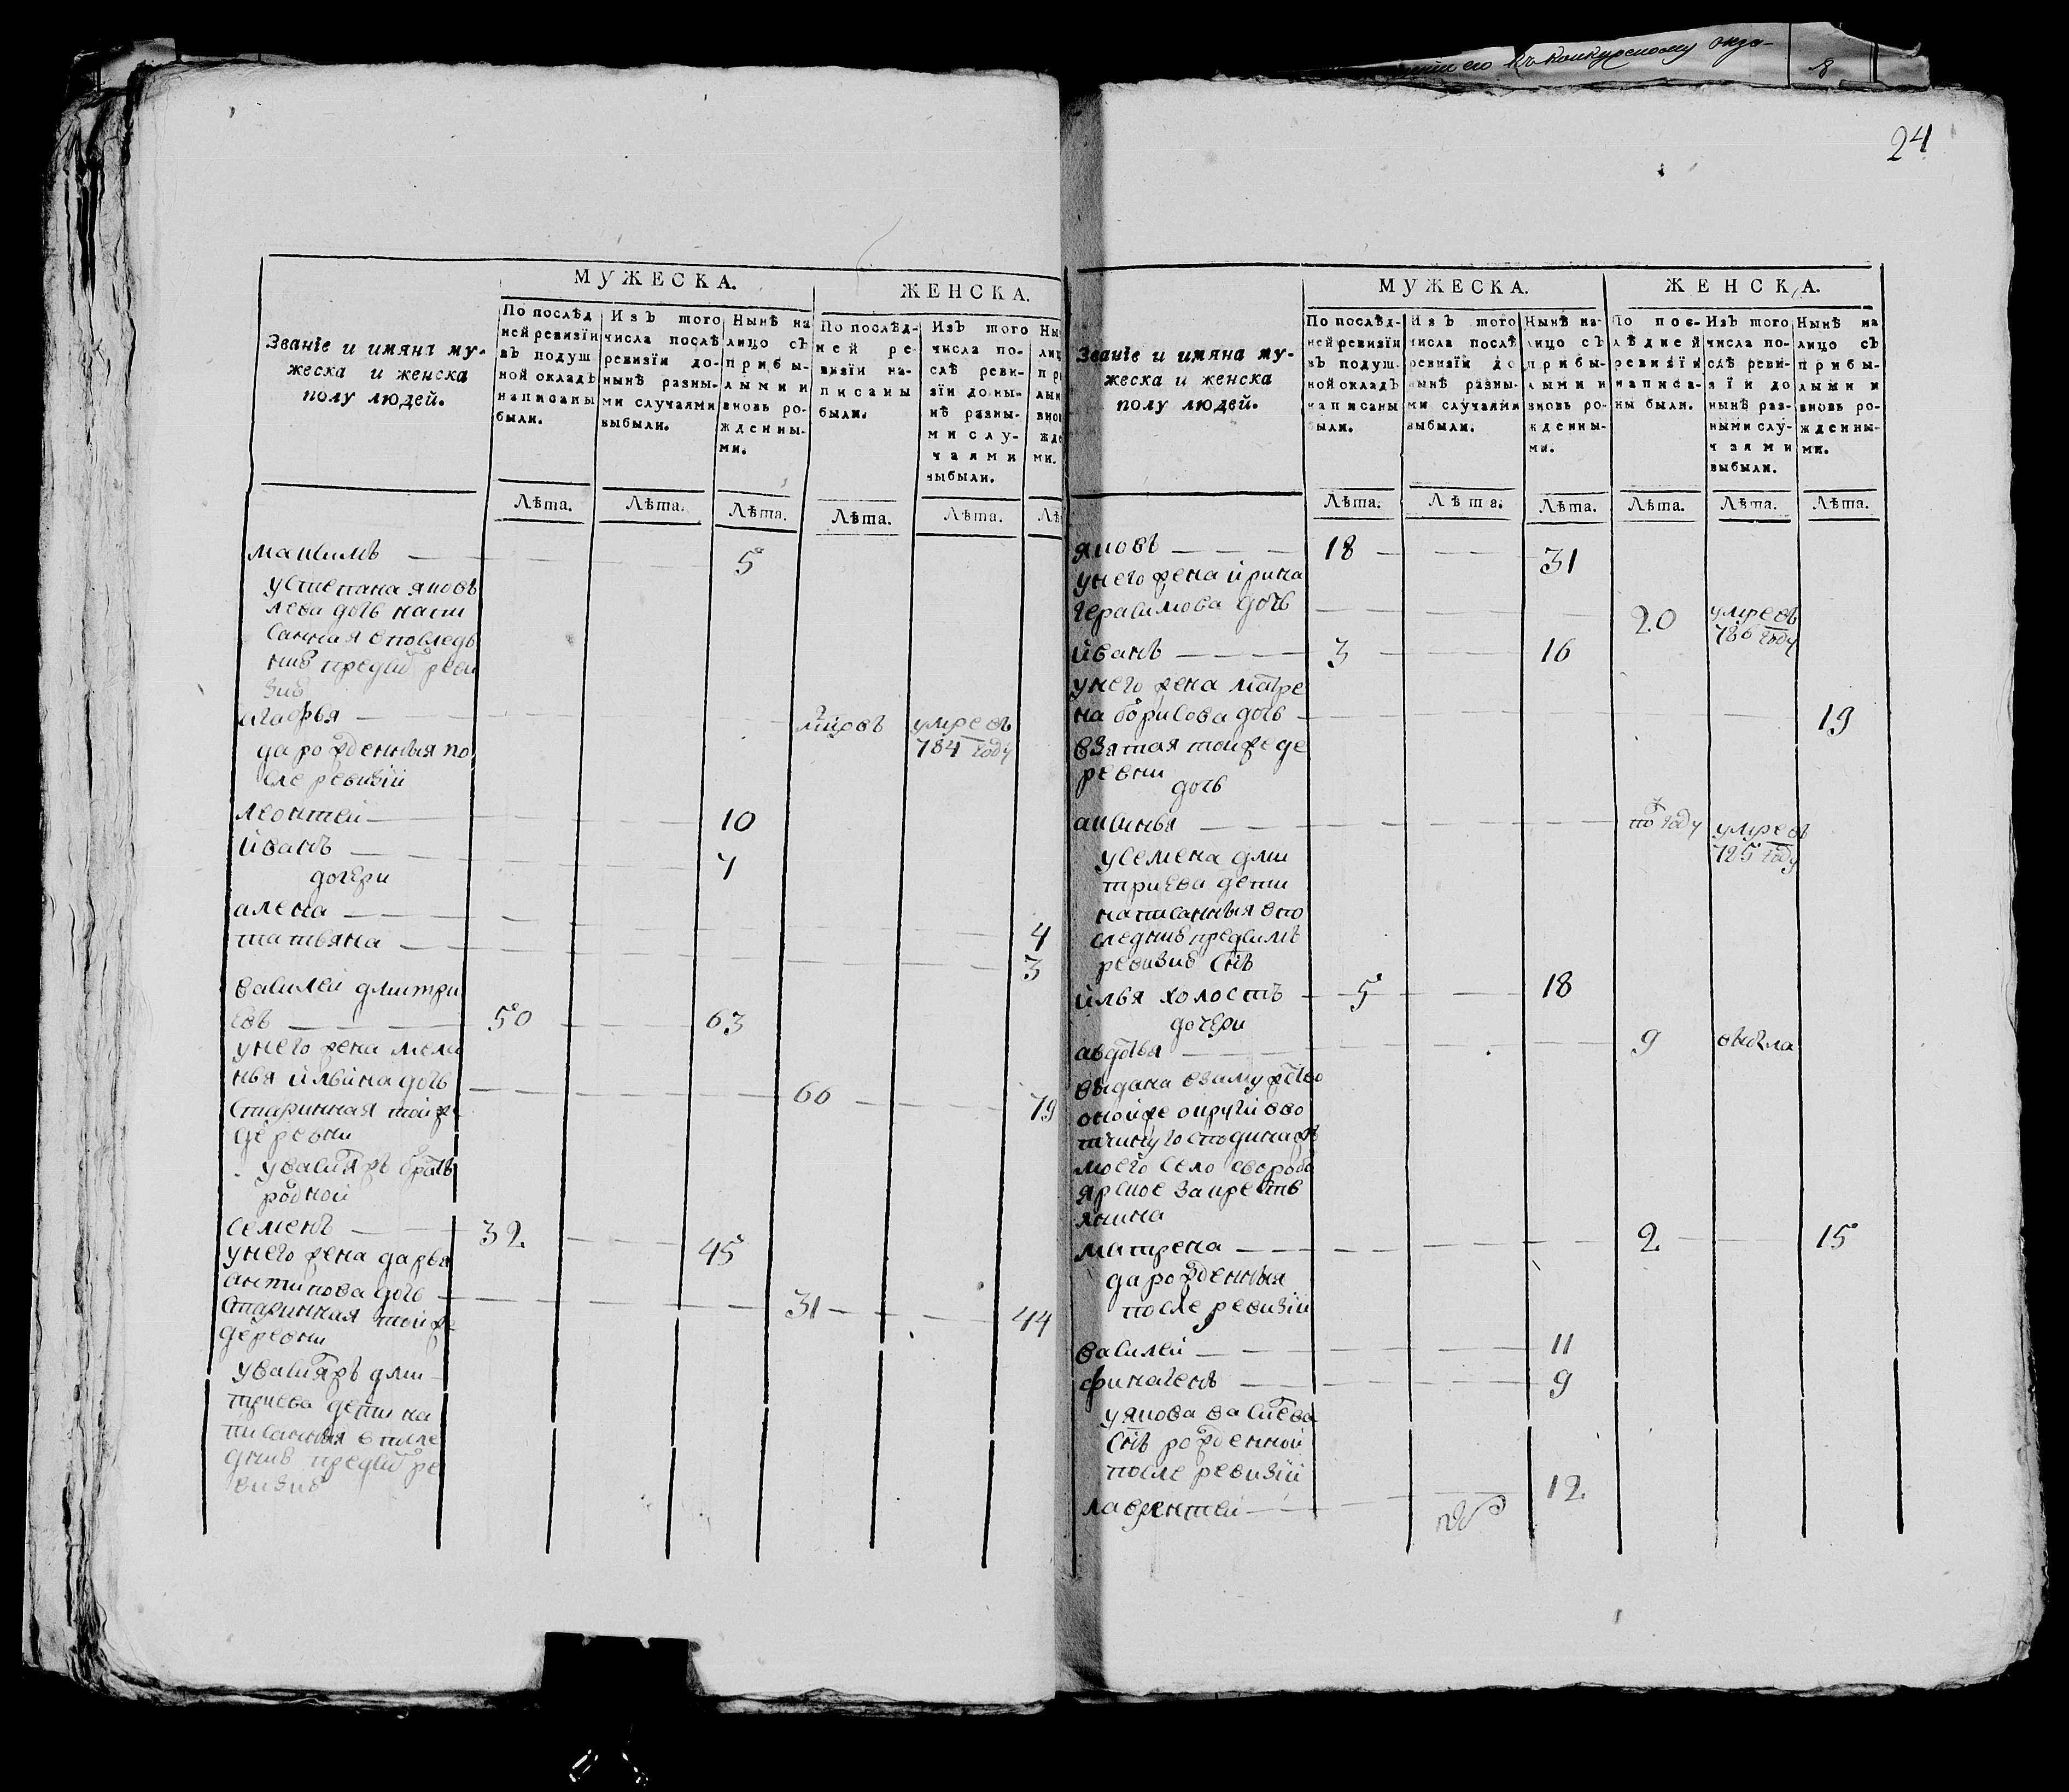 24
МУЖЕСКА.
ЖЕНСКА.
Званіе и имяна му-
жеска и женска
полу людей.
По послѣд
ней ревизіи
въ подуш
ной окладъ
написаны
были.
Изъ того
числа послѣ
ревизіи до-
нынѣ разны-
ми случаями
выбыли.
Нынѣ на
лицо съ
прибы-
лыми и
вновь ро-
жденны-
ми.
По послѣд-
ней ре-
визіи на-
писаны
были.
Изъ того
числа по-
слѣ реви-
зіи доны-
нѣ разны-
ми слу-
чаями
выбыли.
Лѣта. Лѣта. Лѣта. Лѣта. Лѣта.
маѯимъ 5
устепана яковъ
лева дочь напи
санная впоследъ
ней предъсей реви
зие
агафья умре въ 784 году
да рожденныя по
сле ревизіи
леонтей 10
иванъ 7
дочери
алена 4
татьяна 3
василей дмитри
евъ 50 63
унего жена мела
нья ильина дочь 66 79
старинная тойж
деревни
увасилья братъ
родной
семенъ 32 45
унего жена дарья
антипова дочь 31 44
старинная тойже
деревни
увасилья дми
триева дети на
писанныя впосле
днив предъсей ре
визие
МУЖЕСКА.
ЖЕНСКА.
Званіе и имяна му-
жеска и женска
полу людей.
По послѣд-
ней ревизіи
въ подуш-
ной окладъ
написаны
были.
Изъ того
числа послѣ
ревизіи до
нынѣ разны-
ми случаями
выбыли.
Нынѣ на-
лицо съ
прибы-
лыми и
вновь ро-
жденны-
ми.
По пос-
лѣдней
ревизіи
написа-
ны были.
Изъ того
числа по-
слѣ реви-
зіи до
нынѣ раз-
ными слу-
чаями
выбыли.
Нынѣ на
лицо съ
прибы-
лыми и
вновь ро-
жденны-
ми.
Лѣта. Лѣта. Лѣта. Лѣта. Лѣта. Лѣта.
яковъ 18 31
унего жена ирина
герасимова дочь 20 умре въ 786 году
иванъ 3 16
унего жена матре
на борисова дочь 19
взятая тойже де
ревни
дочь
аксинья по году умре въ 785 году
усемена дми
триева дети
написанныя впо
следние предсимъ
ревизие сынъ
илья холостъ 5 18
дочери
авдотья 9
выдана взамужство
онойже округи во
тчину господина
моего село
ярское закресть
янина
матрена 2 15
да рожденныя
после ревизіи
василей 11
финагенъ 9
уякова васильева
сынъ рожденной
после ревизіи
лаврентей 12